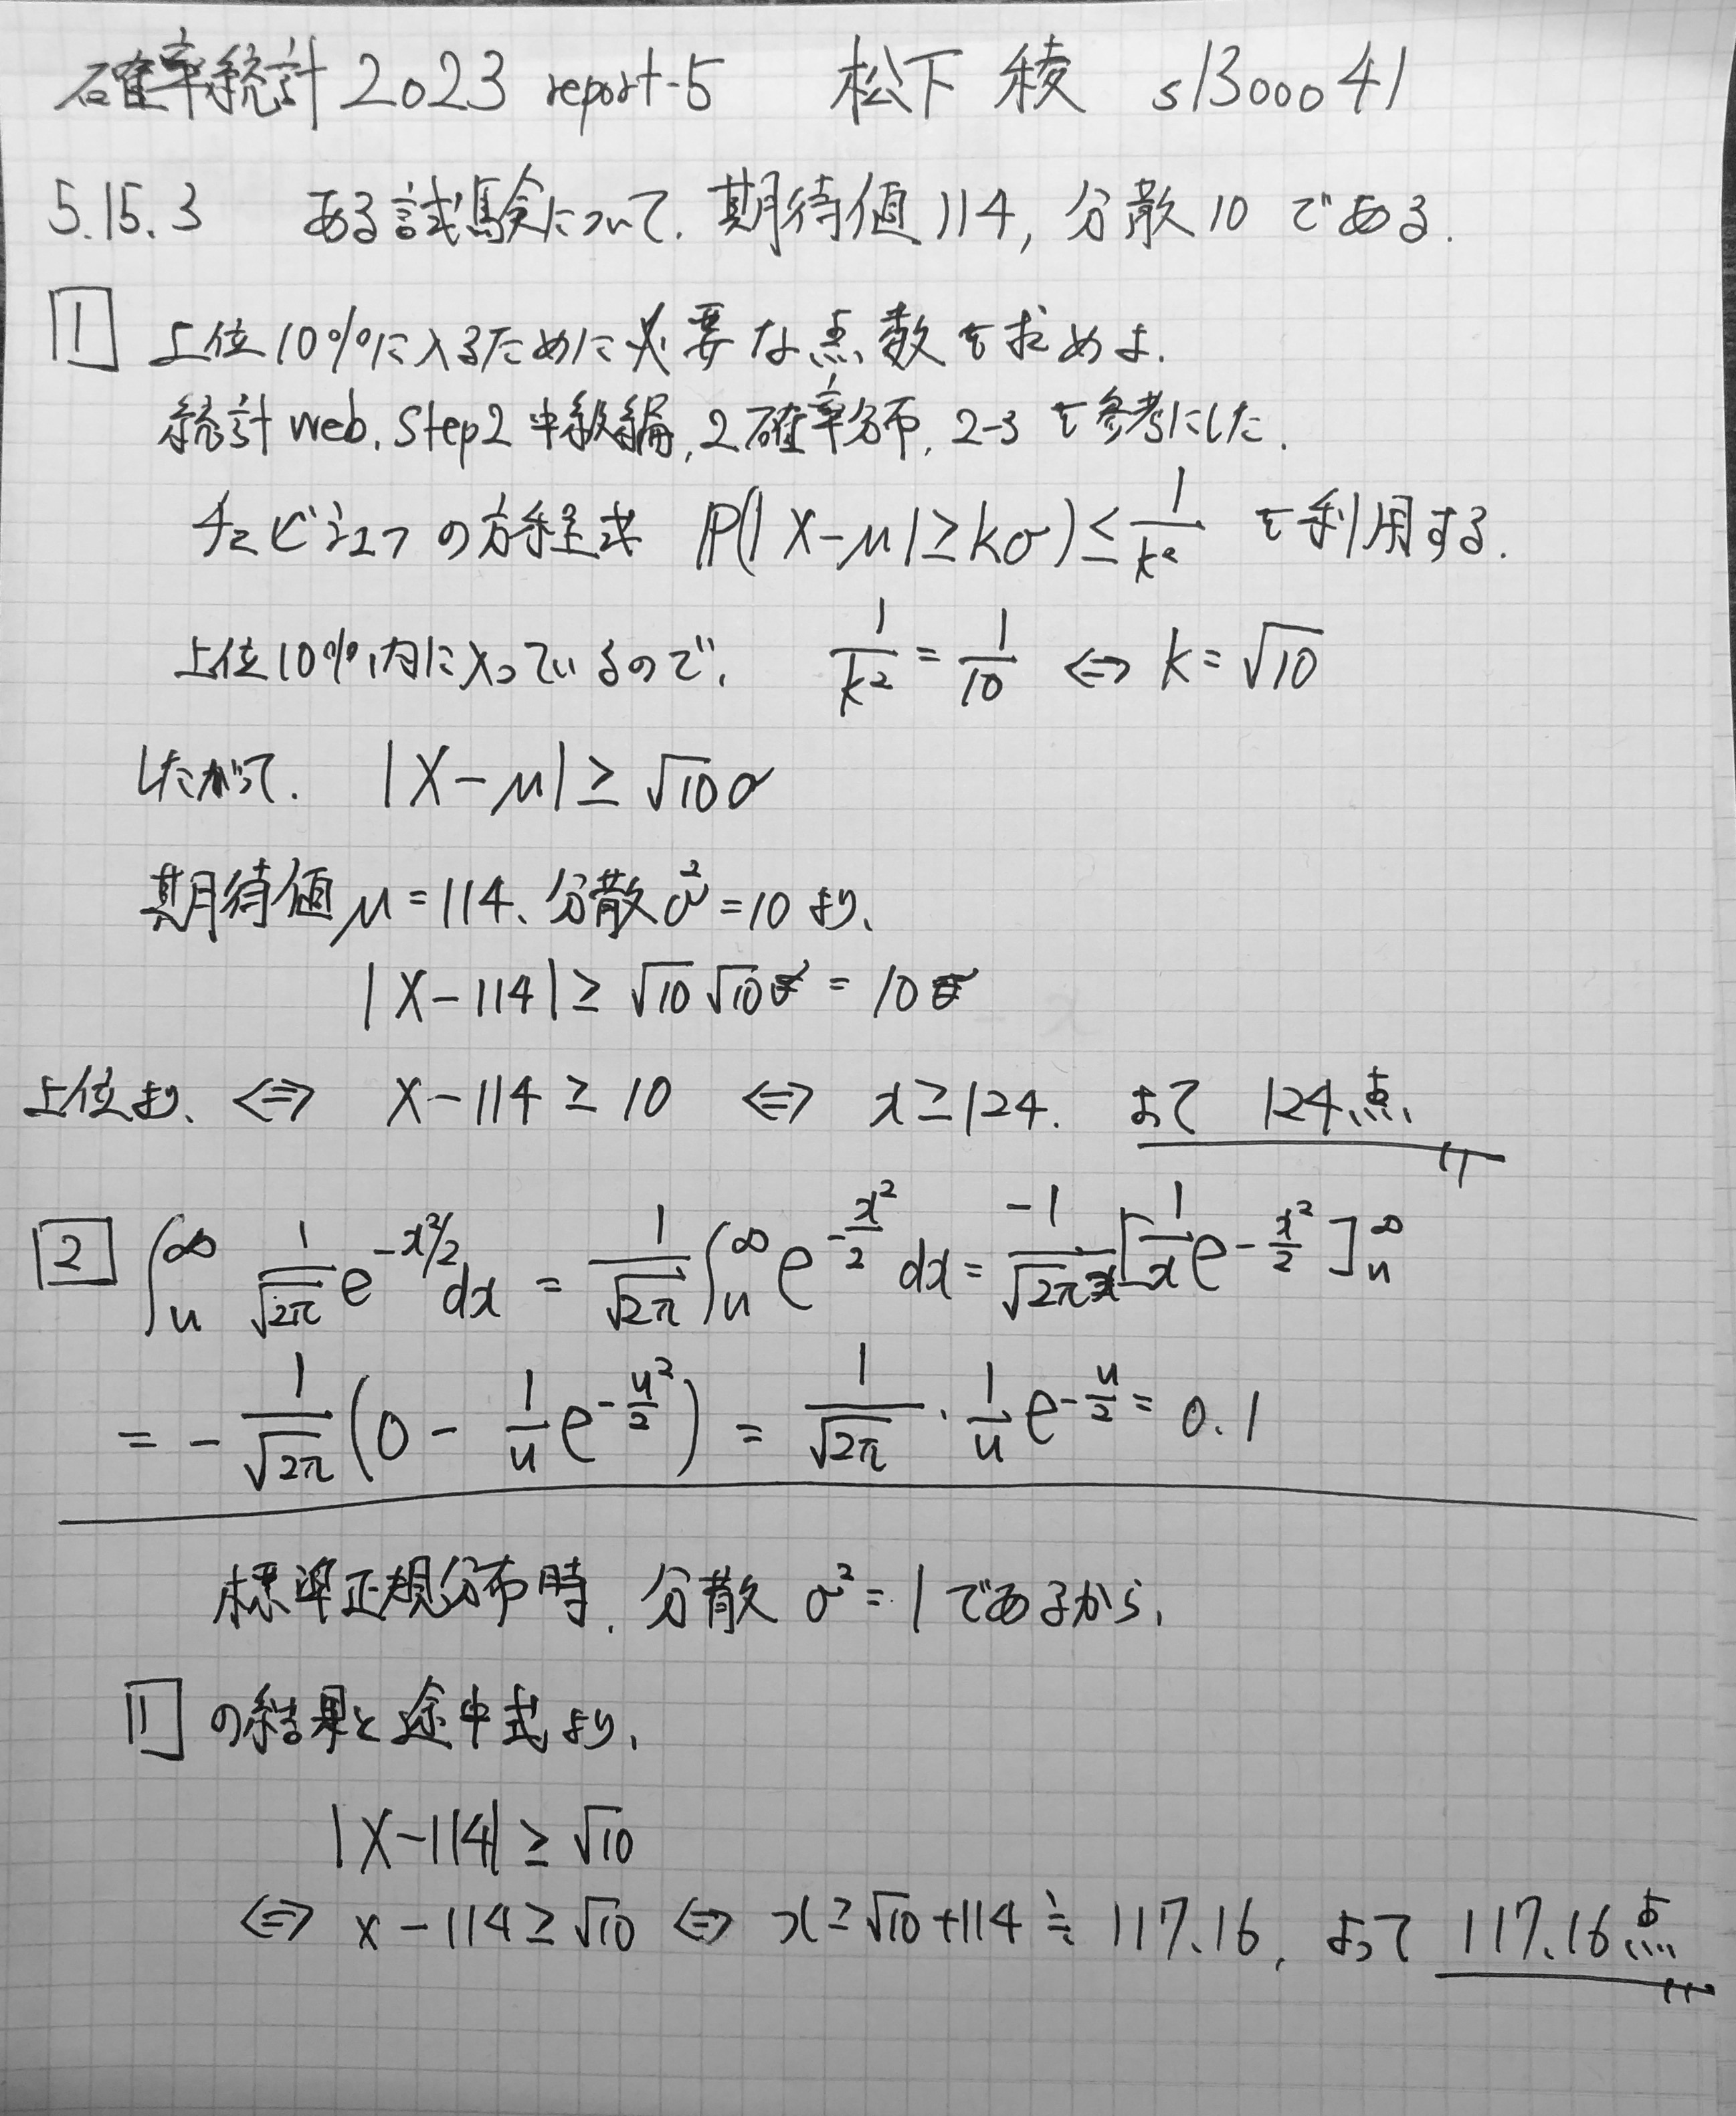 確率統計 2023 report-5 松下 稜 s1300041
5.15.3 ある試験について. 期待値114, 分散10 である.
1 上位10%に入るために必要な点数を求めよ.
統計web, Step2 中級編, 2確率分布, 2-3 を参考にした.
チェビシェフの方程式 P(|X-μ|≥kσ)≤1/k² を利用する.
上位10%内に入っているので, 1/k² = 1/10 ⇔ k=√10
したがって. |X-μ|≥√10σ
期待値μ=114、分散σ²=10より、
|X-114|≥√10√10 = 10
上位より、⇔ X-114≥10 ⇔ x≥124. よって 124点
2 ∫_u^∞ 1/√2π e^{-x²/2} dx = 1/√2π ∫_u^∞ e^{-x²/2} dx = -1/√2π [1/x e^{-x²/2}]_u^∞
= -1/√2π (0 - 1/u e^{-u²/2}) = 1/√2π · 1/u e^{-u/2} = 0.1
標準正規分布時, 分散 σ²=1であるから,
1 の結果と途中式より,
|X-114|≥√10
⇔ x-114≥√10 ⇔ x≥√10+114≒117.16, よって 117.16点